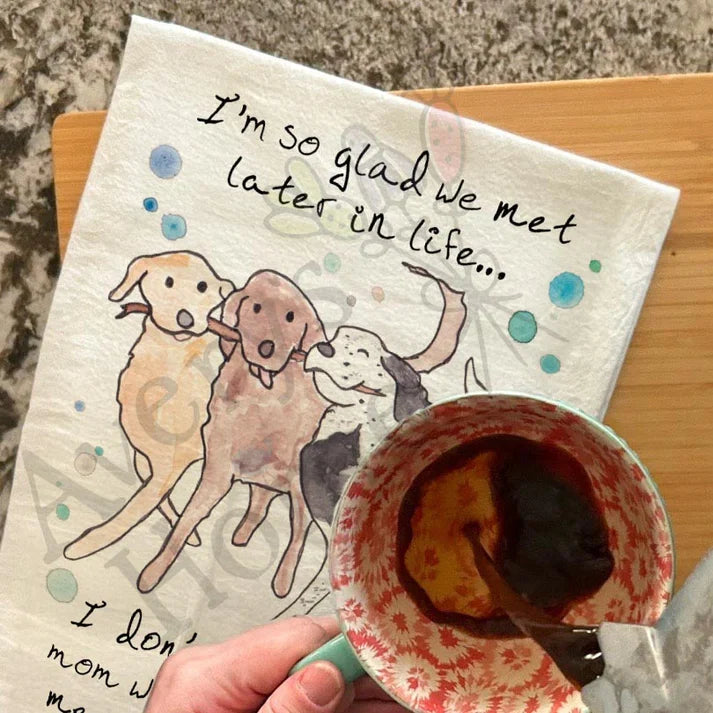 I'm so glad we met
later in life...
I don'
mom w
Avenys